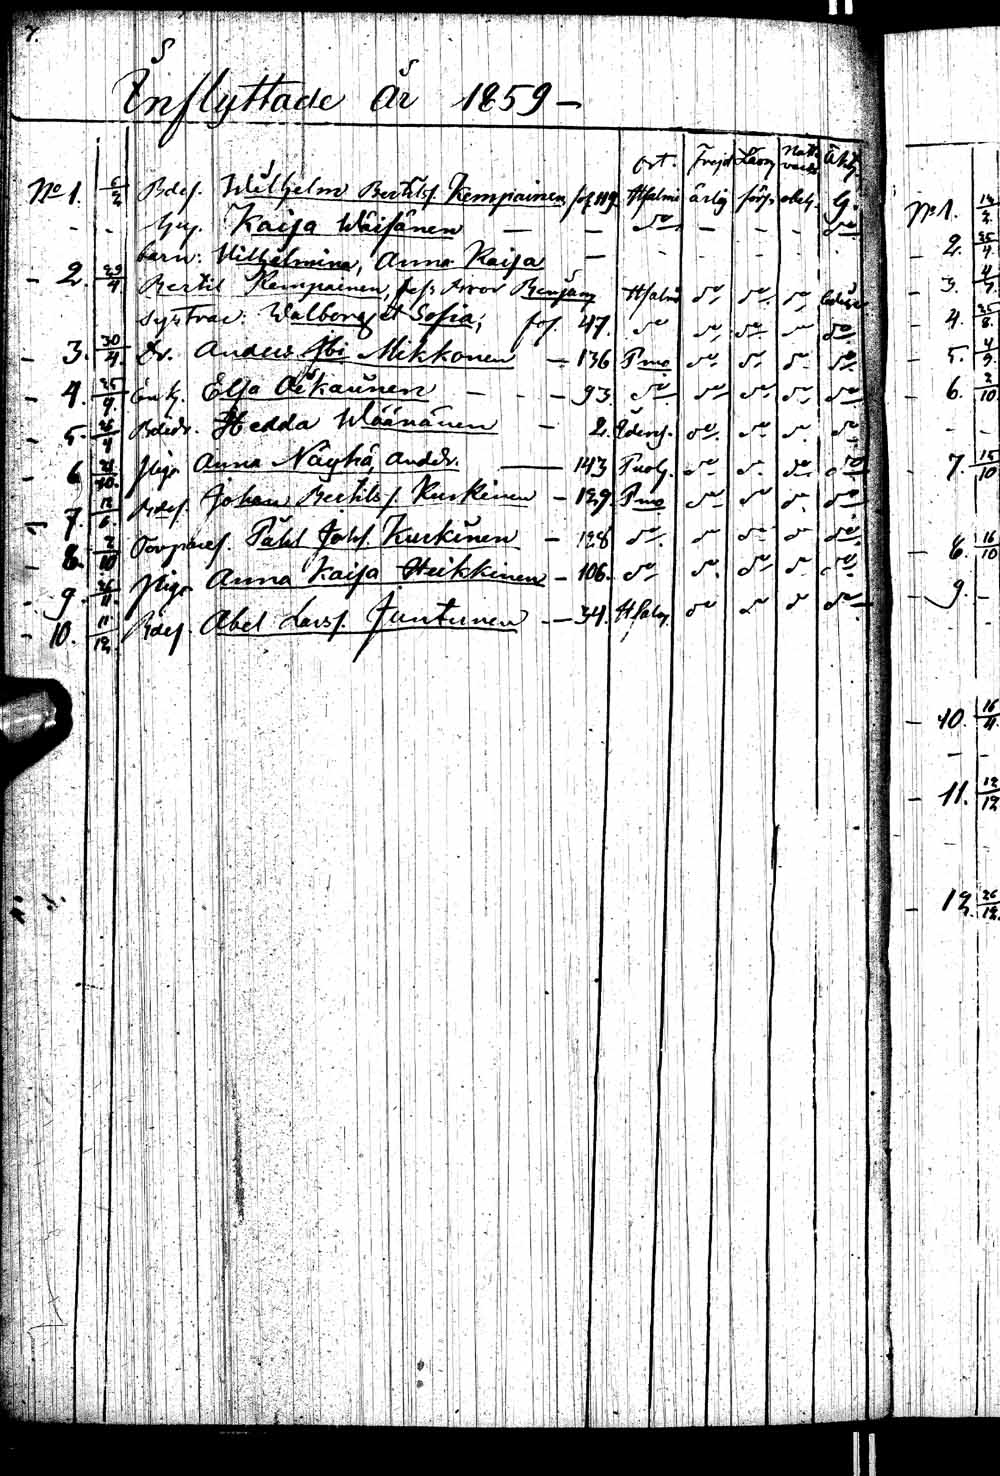 Inflyttade År 1859 –
ort. Frejd Läsn. Natt- vard
No 1. 6/2 Bdes. Wilhelm Bertils. Kempainen fol. 119. Hfalmi ärlig förs. obeh. G.
Hu. Kaisa Wäisänen — — do — — - do
barn: Wilhelmina, Anna Kaisa —
- 2. 29/4 Bertil Kempainen, dess bror Benjam Hfalmi do do do ledige
systrar: Walborg et Sofia; fol. 47. do do do do do
- 3. 30/4. Dr. Anders Mikkonen — 136 Pmo do do do do
- 4. 25/9. Enk. Elsa Oikarinen — - - 93 do do do do do
- 5. 26/4 Bdedr. Hedda Wäänänen — 2. do do do do
- 6 21/10. Pig. Anna Näykä, ander. — 143 do do do do
- 7. 12/6. Bdes. Johan Bertils s. Kurkinen – 129. Pmo do do do do
- 8. 2/10 Påhl Joh s. Kurkinen – 128 do do do do do
- 9. 26/11. Piga Anna Kaisa Heikkinen – 106. do do do do do
- 10. 11/12. Bdes. Abel Lars s. Juntunen — 34. do do do do
No 1. 14/2.
- 2. 25/4.
- 3. 4/7.
- 4. 25/8.
- 5. 4/9.
- 6. 2/10.
- 7. 15/10
- 8. 16/10
- 9. -
- 10. 16/11.
- 11. 12/12
- 12. 26/12.